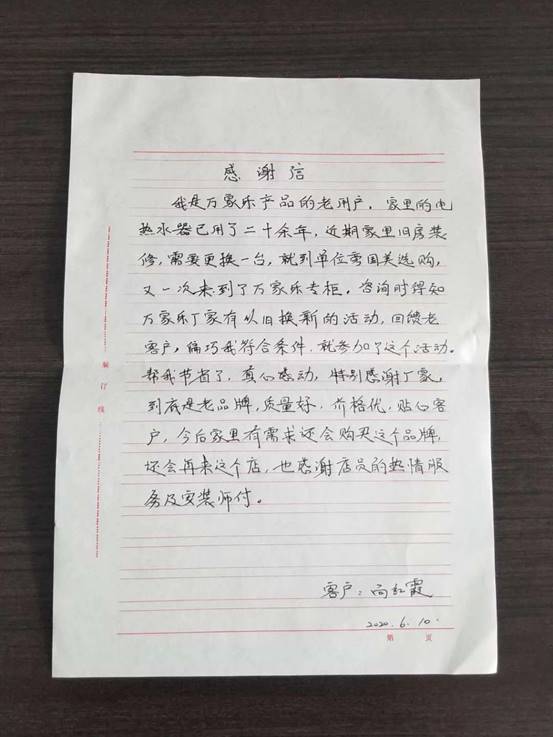 感谢信
我是万家乐产品的老用户，家里的电
热水器已用了二十余年，近期家里旧房装
修，需要更换一台，就到单位旁国美选购，
又一次来到了万家乐专柜，咨询时得知
万家乐厂家有以旧换新的活动，回馈老
客户，偏巧我符合条件，就参加了这个活动。
帮我节省了，真心感动，特别感谢厂家，
到底是老品牌，质量好，价格优，贴心客
户，今后家里有需求还会购买这个品牌，
还会再来这个店，也感谢店员的热情服
务及安装师付。
客户：向红霞
2020.6.10.
第 页
装订线